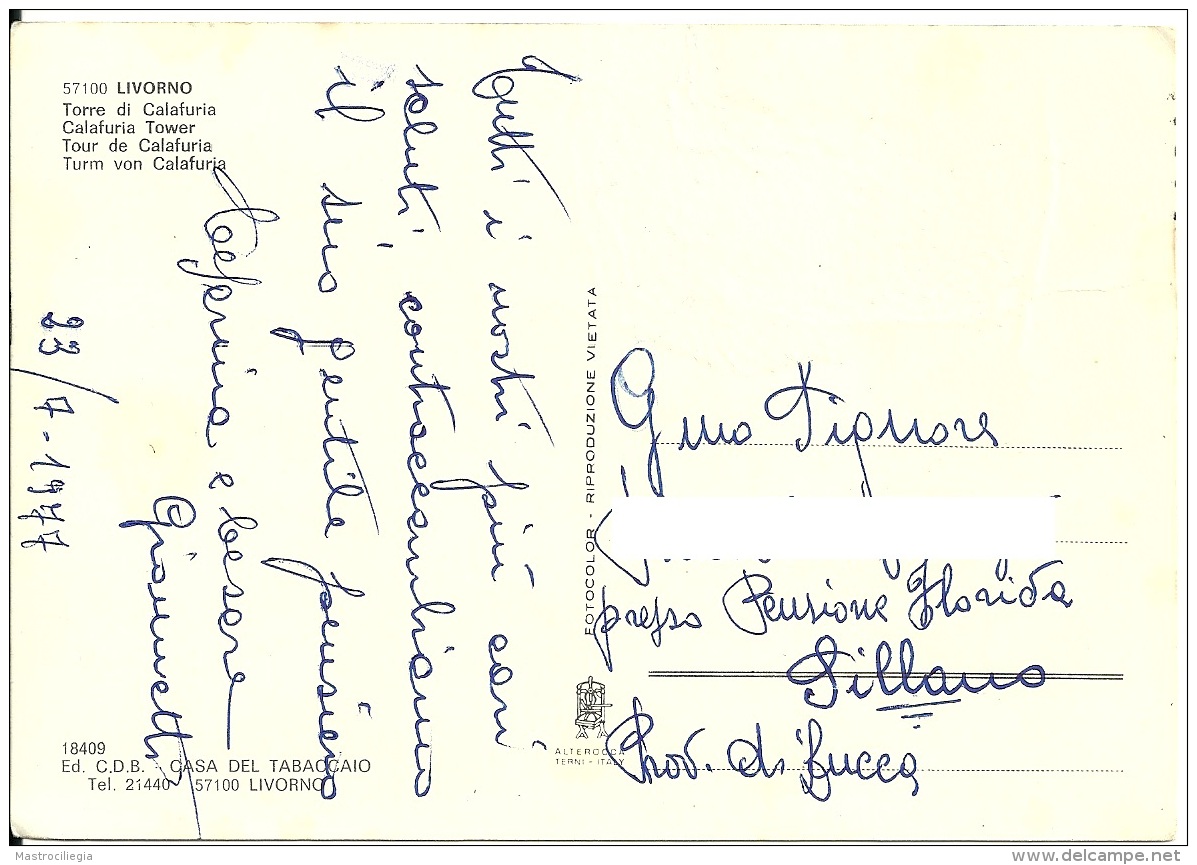 57100 LIVORNO
Torre di Calafuria
Calafuria Tower
Tour de Calafuria
Turm von Calafuria
Tutti i nostri più cari
saluti, contraccambiamo
il suo gentile pensiero
e Cesare
Giannetti
23/7-1977
18409
Ed. C.D.B. - CASA DEL TABACCAIO
Tel. 21440 57100 LIVORNO
FOTOCOLOR - RIPRODUZIONE VIETATA
ALTEROCCA
TERNI - ITALY
Gino
presso Pensione Florida
Fillano
Prov. di Lucca
Mastrociliegia
delcampe.net